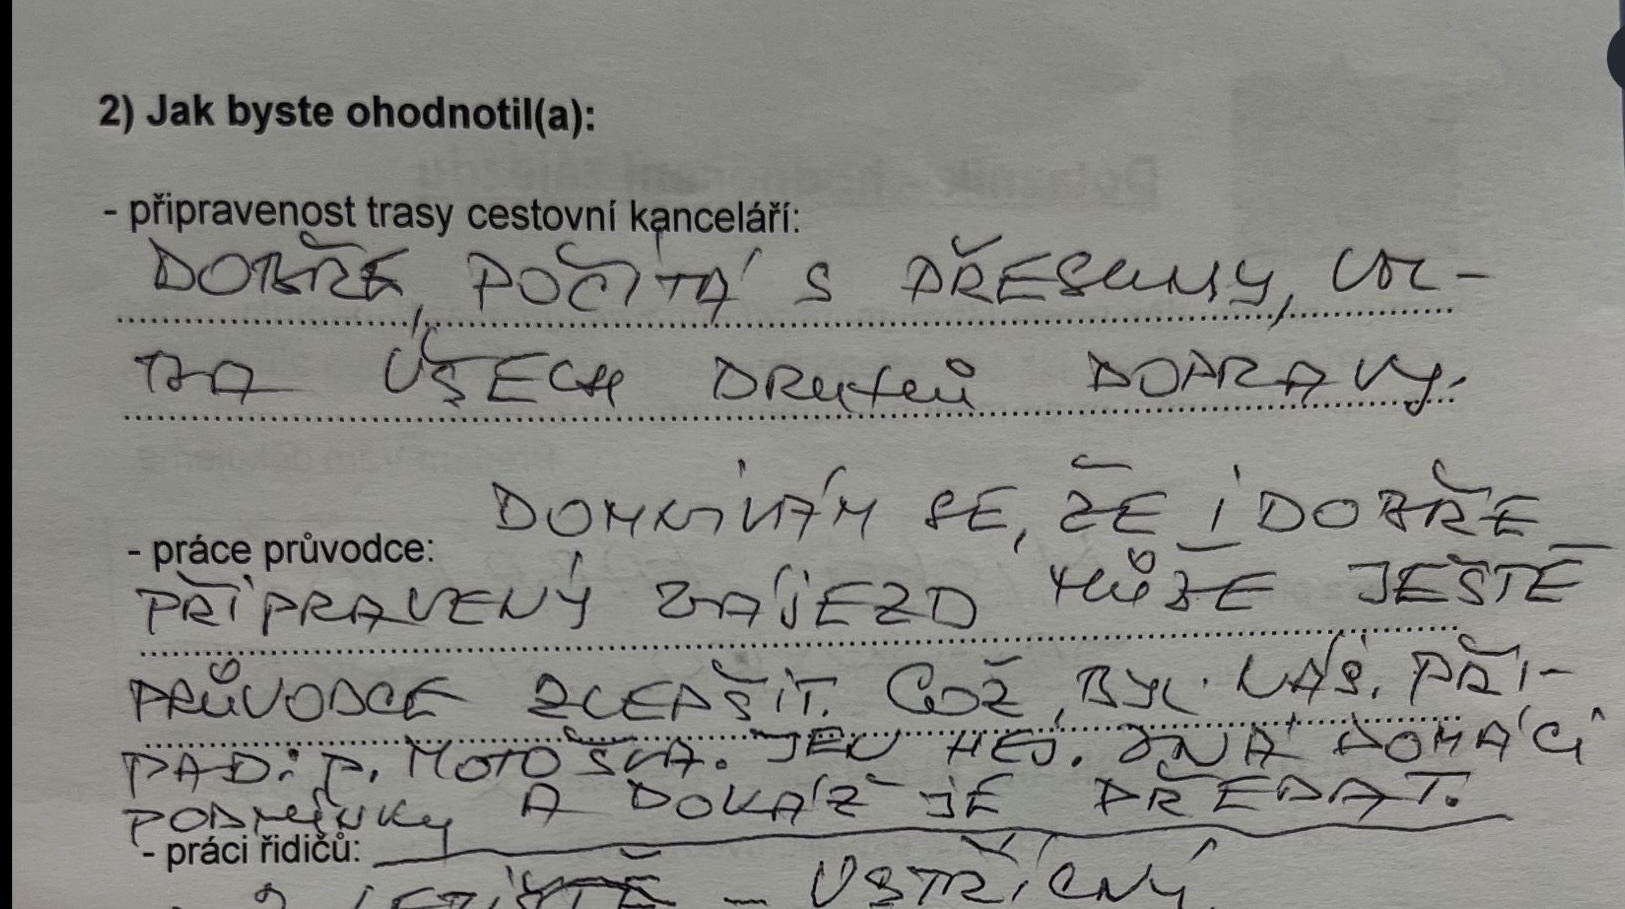 2) Jak byste ohodnotil(a):
- připravenost trasy cestovní kanceláří:
DOBŘE, POČÍTÁ S PŘESUNY,
VŠECH DRUHŮ DOPRAVY.
DOMNÍVÁM SE, ŽE I DOBŘE
- práce průvodce:
PŘIPRAVENÝ ZÁJEZD MŮŽE JEŠTĚ
PRŮVODCE ZLEPŠIT. COŽ BYL NÁŠ PŘÍ-
PAD: P. JEN ZNÁ DOMÁCÍ
PODMÍNKY A DOKÁŽE JE PŘEDAT.
- práci řidičů:
Z LETIŠTĚ – VSTŘÍCNÝ